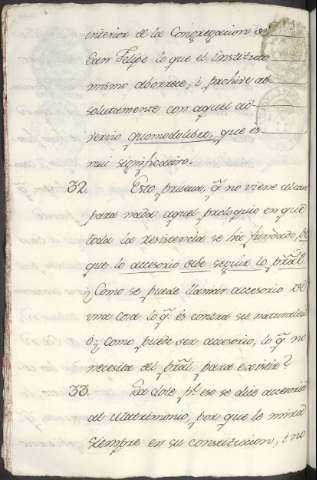 interior de la Congregacion de
San Felipe lo que el instituto
mismo aborrece, i prohive ab-
solutamente con aquel ad-
vervio quomodolibet, que es
mui significativo.
32. Esto prueva, q̃ no viene al caso
para nada aquel prologuio en que
toda la resistencia se ha fundado,
que lo accesorio debe seguir lo pr̃al
¿Como se puede llamar accesorio de
una cosa lo q̃ es contra su naturaleza?
O como puede ser accesorio, lo q̃ no
necesita del pr̃al para existir?
33. La dote pr̃ eso se dice accesoria
al Matrimonio, por que lo mira
siempre en su constitucion, i no